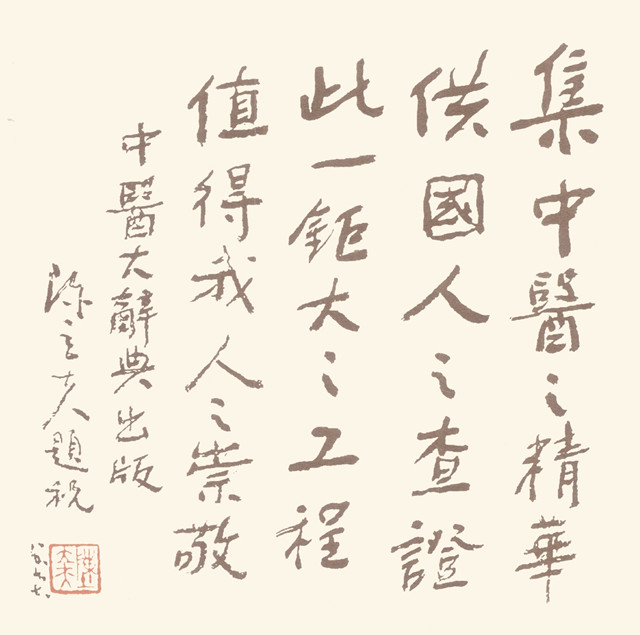 集中醫之精華
供國人之查證
此一鉅大之工程
值得我人之崇敬
中醫大辭典出版
陳立夫題祝